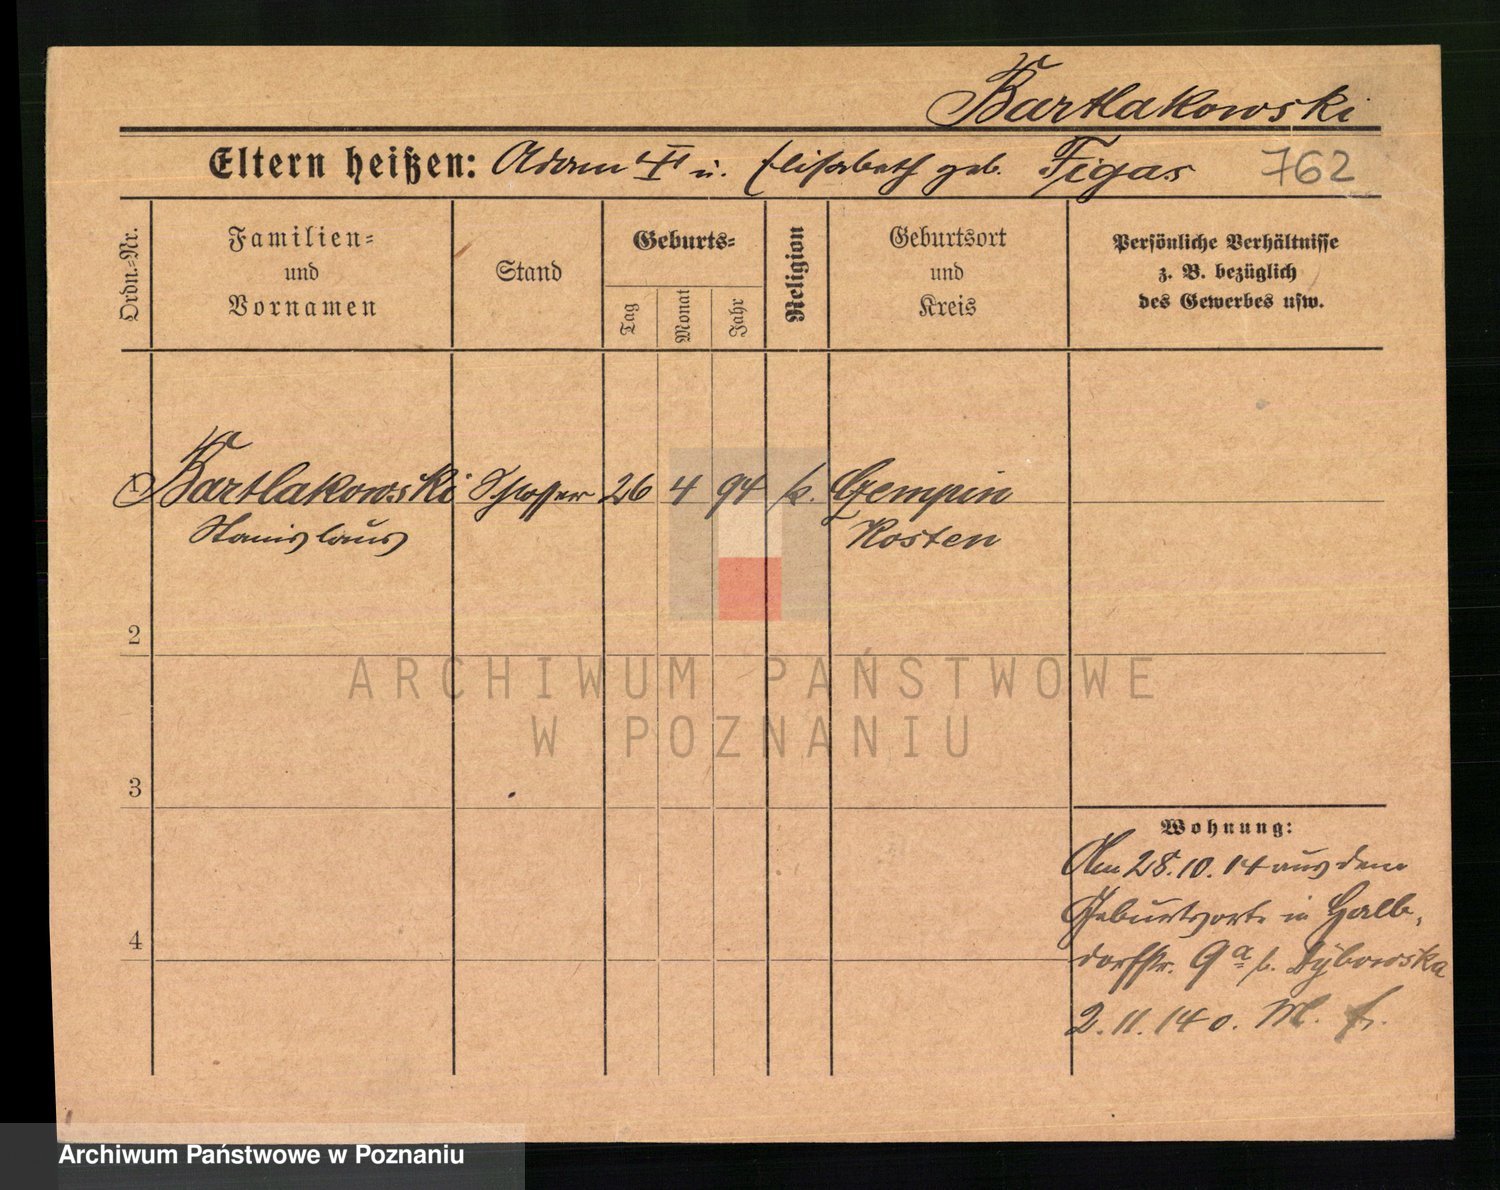 Bartlakowski
Eltern heißen: Adam † u. Elisabeth geb. Figas 762
Ordn.-Nr.
Familien-
und
Vornamen
Stand
Geburts-
Tag
Monat
Jahr
Religion
Geburtsort
und
Kreis
Persönliche Verhältnisse
z. B. bezüglich
des Gewerbes usw.
1 Bartlakowski Schlosser 26 4 94 k. Gempin
Stanislaus Kosten
2
3
4
Wohnung:
Am 28.10.14 aus dem
Geburtsorte in Halb-
dorfstr. 9a b. Dybowska
2.11.14 o. M.
ARCHIWUM PAŃSTWOWE
W POZNANIU
Archiwum Państwowe w Poznaniu